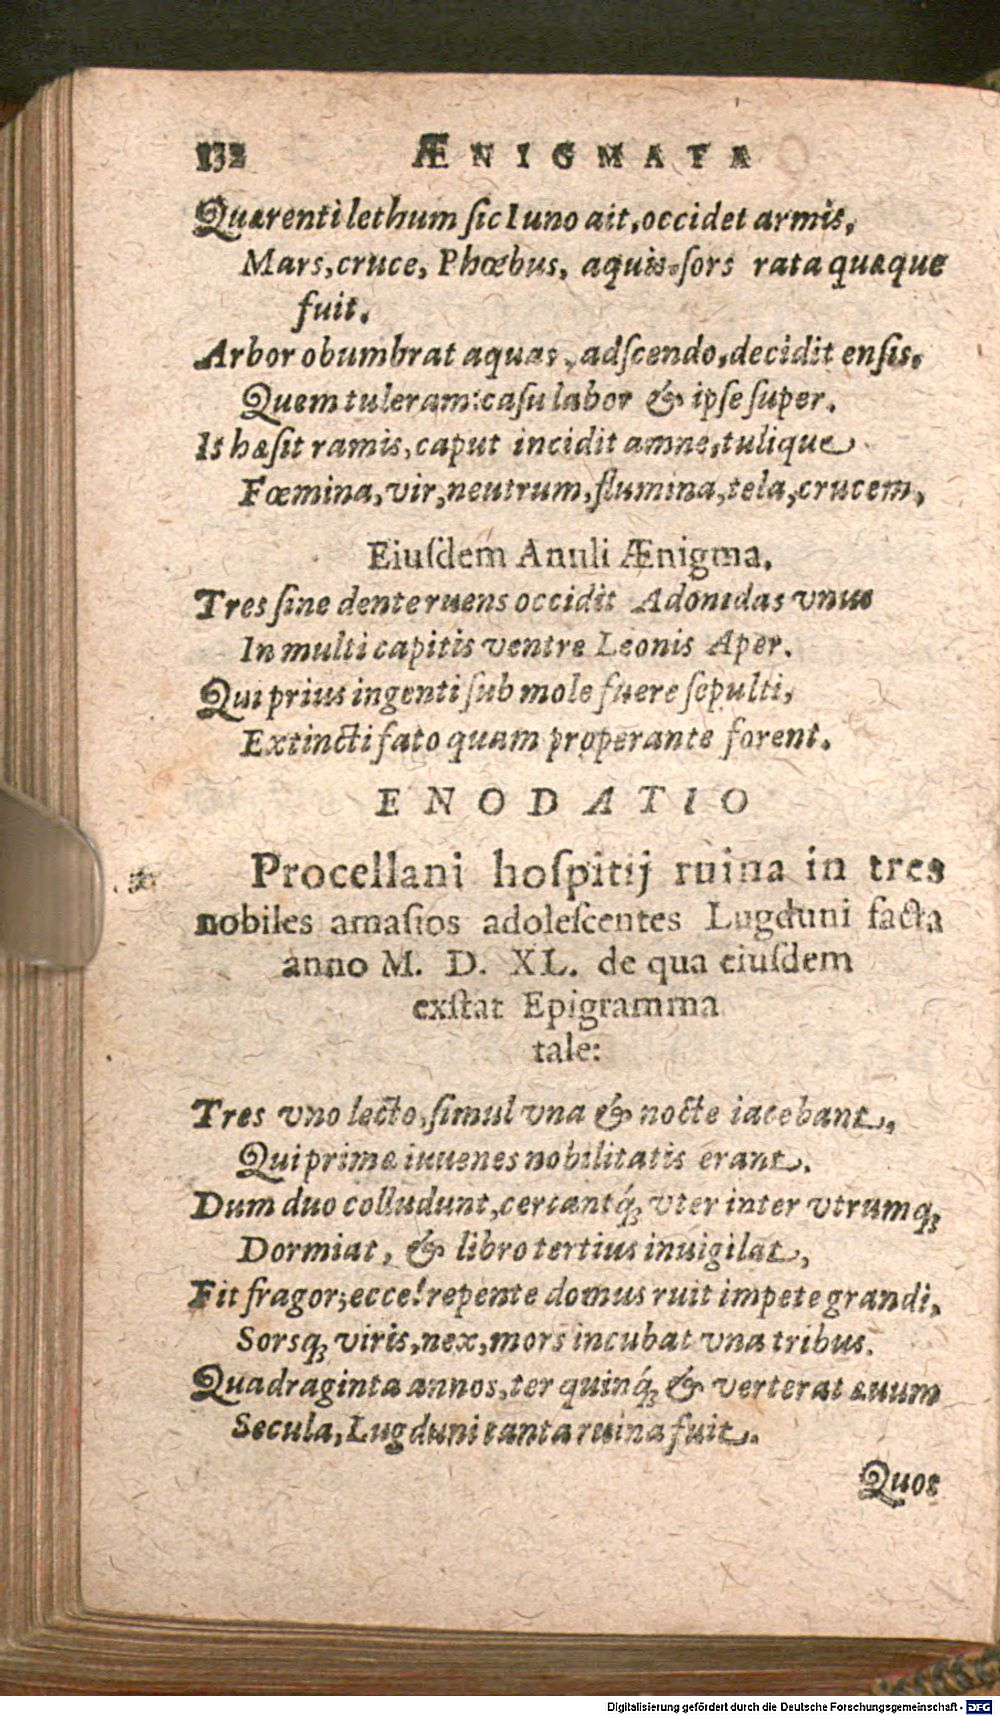 132 ÆNIGMATA
Quærenti lethum ſic Iuno ait, occidet armis,
Mars, cruce, Phœbus, aquis. ſors rata quæque
fuit.
Arbor obumbrat aquas, adſcendo, decidit enſis,
Quem tuleram: caſu labor & ipſe ſuper.
Is hæſit ramis, caput incidit amne, tulique
Fœmina, vir, neutrum, flumina, tela, crucem,
Eiuſdem Anuli Ænigma,
Tres ſine dente ruens occidit Adonidas vnus
In multi capitis ventre Leonis Aper.
Qui prius ingenti ſub mole fuere ſepulti,
Extincti fato quam properante forent.
ENODATIO
Procellani hoſpitij ruina in tres
nobiles amaſios adoleſcentes Lugduni facta
anno M. D. XL. de qua eiuſdem
exſtat Epigramma
tale:
Tres vno lecto, ſimul vna & nocte iacebant,
Qui primæ iuuenes nobilitatis erant.
Dum duo colludunt, certantq́; vter inter vtrumq;
Dormiat, & libro tertius inuigilat,
Fit fragor; ecce! repente domus ruit impete grandi,
Sorsq; viris, nex, mors incubat vna tribus.
Quadraginta annos, ter quinq́; & verterat æuum
Secula, Lugduni tanta ruina fuit.
Quos
Digitalisierung gefördert durch die Deutsche Forschungsgemeinschaft - DFG